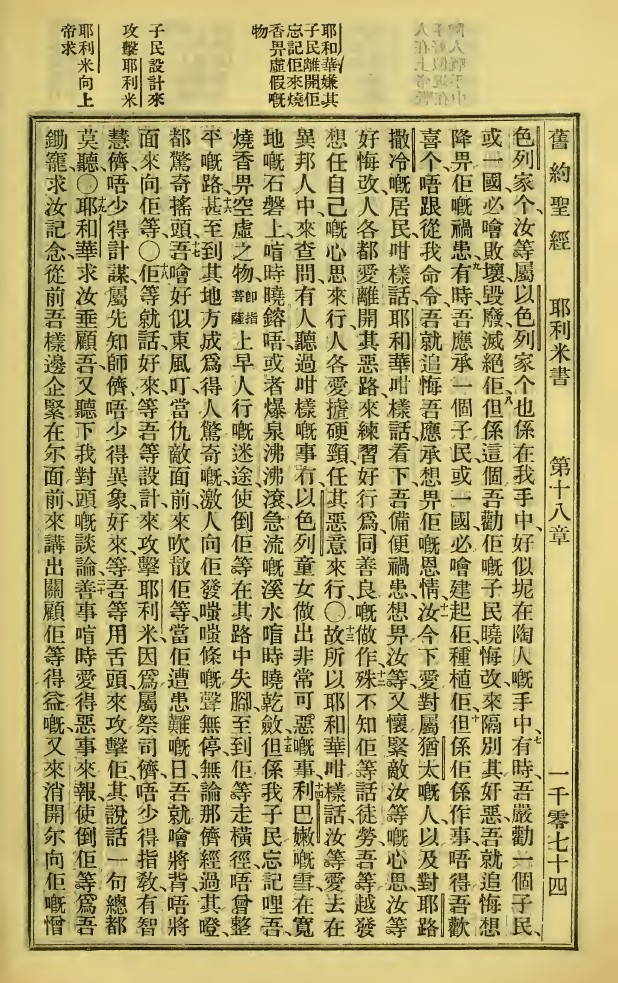 舊約聖經 耶利米書 第十八章 一千零七十四
色列家个、汝等屬以色列家个也係在我手中、好似坭在陶人嘅手中、七有時、吾嚴勸一個子民、
或一國必噲敗壞毀廢滅絕佢、八但係這個吾勸佢嘅子民曉悔改、來隔別其奸惡、吾就追悔吾想
降畀佢嘅禍患、九有時、吾應承一個子民或一國必噲建起佢種植佢、十但係佢係作事唔得吾歡
喜、个唔跟從我命令、吾就追悔吾應承想畀佢嘅恩情、十一汝今下愛對屬猶太嘅人、以及對耶路
撒冷嘅居民、咁樣話、耶和華咁樣話、看下吾備便禍患想畀汝等、又懷緊敵汝等嘅心思、汝等
好悔改、人各都愛離開其惡路、來練習好行爲、同善良嘅做作、十二殊不知佢等話、徒勞、吾等越發
想任自己嘅心思來行、人各愛㨃硬頸任其惡意來行、〇十三故所以耶和華咁樣話、汝等愛去在
異邦人中、來查問有人聽過咁樣嘅事冇、以色列童女做出非常可惡嘅事、十四利巴嫩嘅雪在寬
地嘅石磐上、啃時曉鎔唔、或者爆泉沸沸滾、急流嘅溪水、啃時曉乾斂、十五但係我子民忘記哩吾、
燒香畀空虛之物、卽指菩薩上早人行嘅迷途、使倒佢等在其路中失腳、至到佢等走橫徑唔曾整
平嘅路、十六甚至到其地方成爲得人驚奇嘅、激人向佢發嗤嗤條嘅聲無停、無論那儕經過其墱、
都驚奇搖頭、十七吾噲好似東風、叮當仇敵面前來吹散佢等、當佢遭患難嘅日、吾就噲將背唔將
面來向佢等、〇十八佢等就話、好來、等吾等設計來攻擊耶利米、因爲屬祭司儕唔少得指敎、有智
慧儕唔少得計謀、屬先知師儕唔少得異象、好來、等吾等用舌頭來攻擊佢、其說話一句總都
莫聽、〇十九耶和華求汝垂顧吾、又聽下我對頭嘅談論、二十善事啃時愛得惡事來報、使倒佢等爲吾
鋤窿、求汝記念從前吾樣邊企緊在尔面前、來講出關顧佢等得益嘅、又來消開尔向佢嘅憎
耶和華嫌其
子民離開佢
忘記佢來燒
香畀虛假嘅
物
子民設計來
攻擊耶利米
耶利米向上
帝求